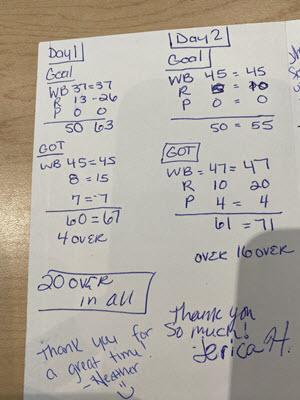 Day 1
Goal
WB 37=37
R 13-26
P 0 0
50 63
GOT
WB 45=45
8=15
7=7
60=67
4 OVER
20 OVER
in all
Thank you for
a great time!
-Heather
Day 2
Goal
WB 45=45
R 5=10
P 0=0
50=55
GOT
WB=47=47
R 10 20
P 4=4
61=71
OVER 16 OVER
Thank you
So much!
Jerica H.